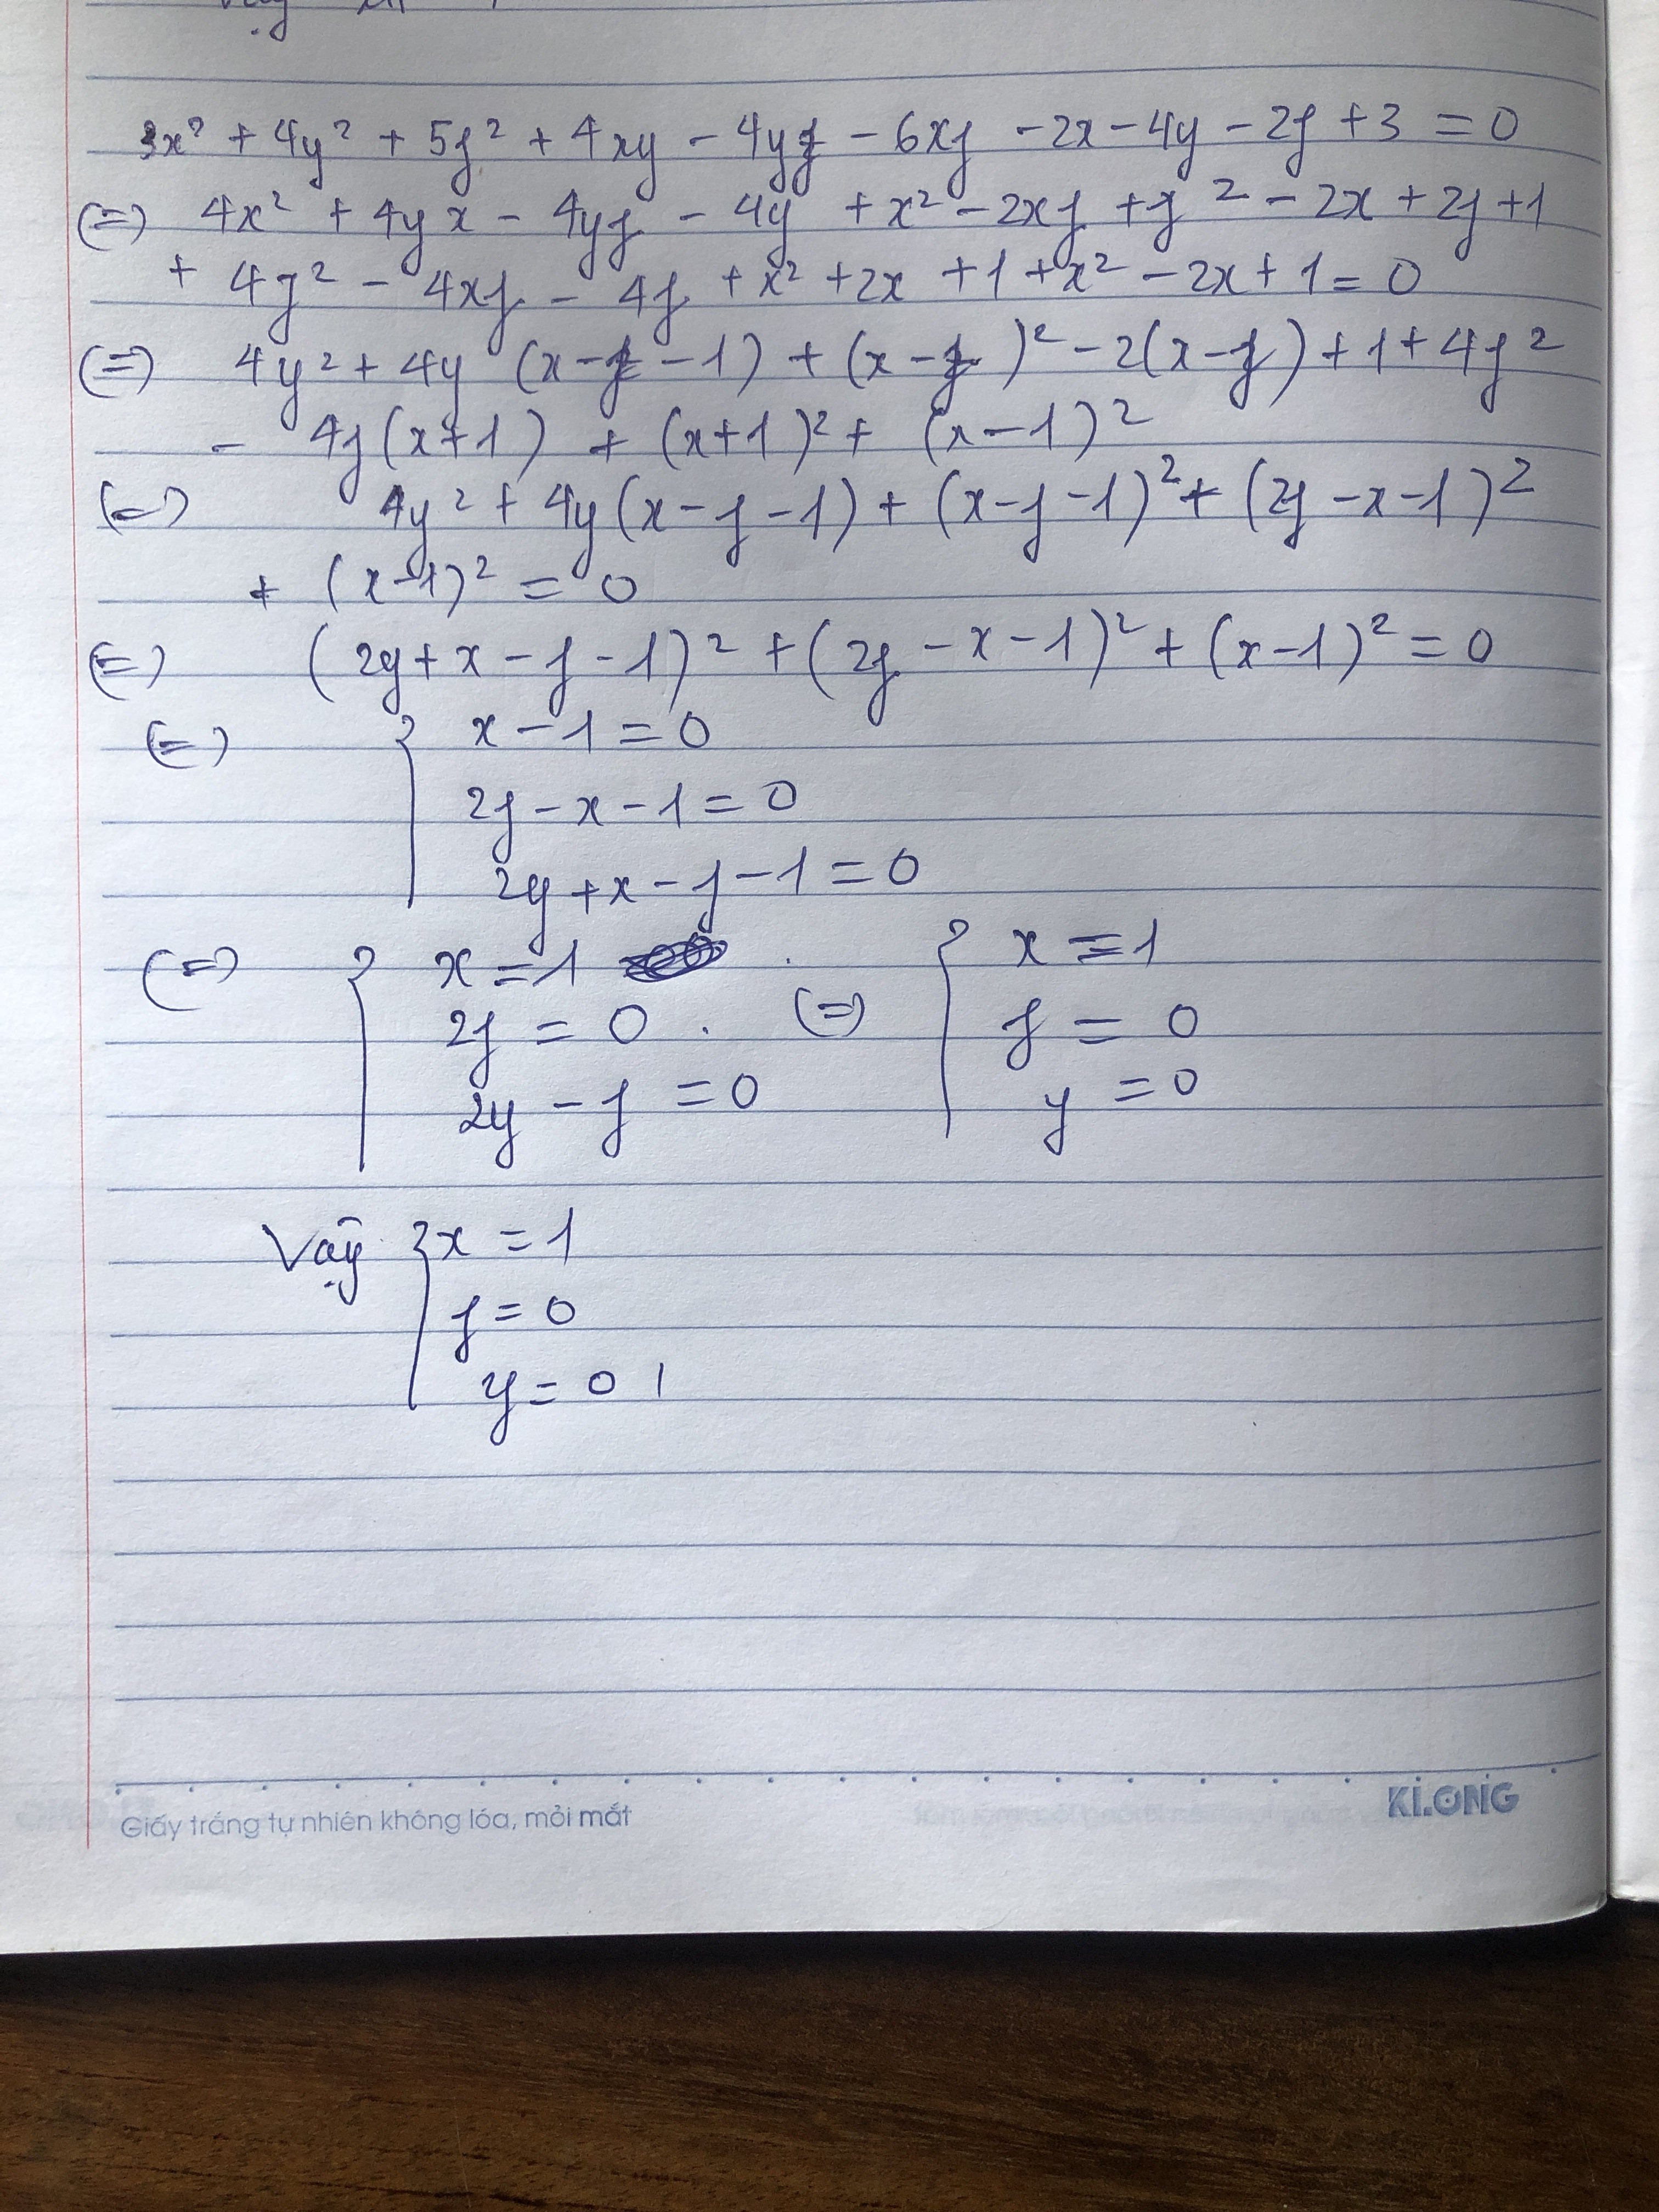 3x² + 4y² + 5z² + 4xy - 4yz - 6xz - 2x - 4y - 2z + 3 = 0
(=) 4x² + 4yx - 4yz - 4y + x² - 2xz + z² - 2x + 2z + 1
+ 4z² - 4xz - 4z + x² + 2x + 1 + x² - 2x + 1 = 0
(=) 4y² + 4y (x - z - 1) + (x - z)² - 2(x - z) + 1 + 4z²
- 4z(x+1) + (x+1)² + (x-1)²
(=) 4y² + 4y(x - z - 1) + (x - z - 1)² + (2z - x - 1)²
+ (x-1)² = 0
(=) (2y + x - z - 1)² + (2z - x - 1)² + (x-1)² = 0
(=) { x - 1 = 0
2z - x - 1 = 0
2y + x - z - 1 = 0
(=) { x = 1 (=) { x = 1
2z = 0 . z = 0
2y - z = 0 y = 0
Vậy { x = 1
z = 0
y = 0
Giấy trắng tự nhiên không lóa, mỏi mắt KLONG